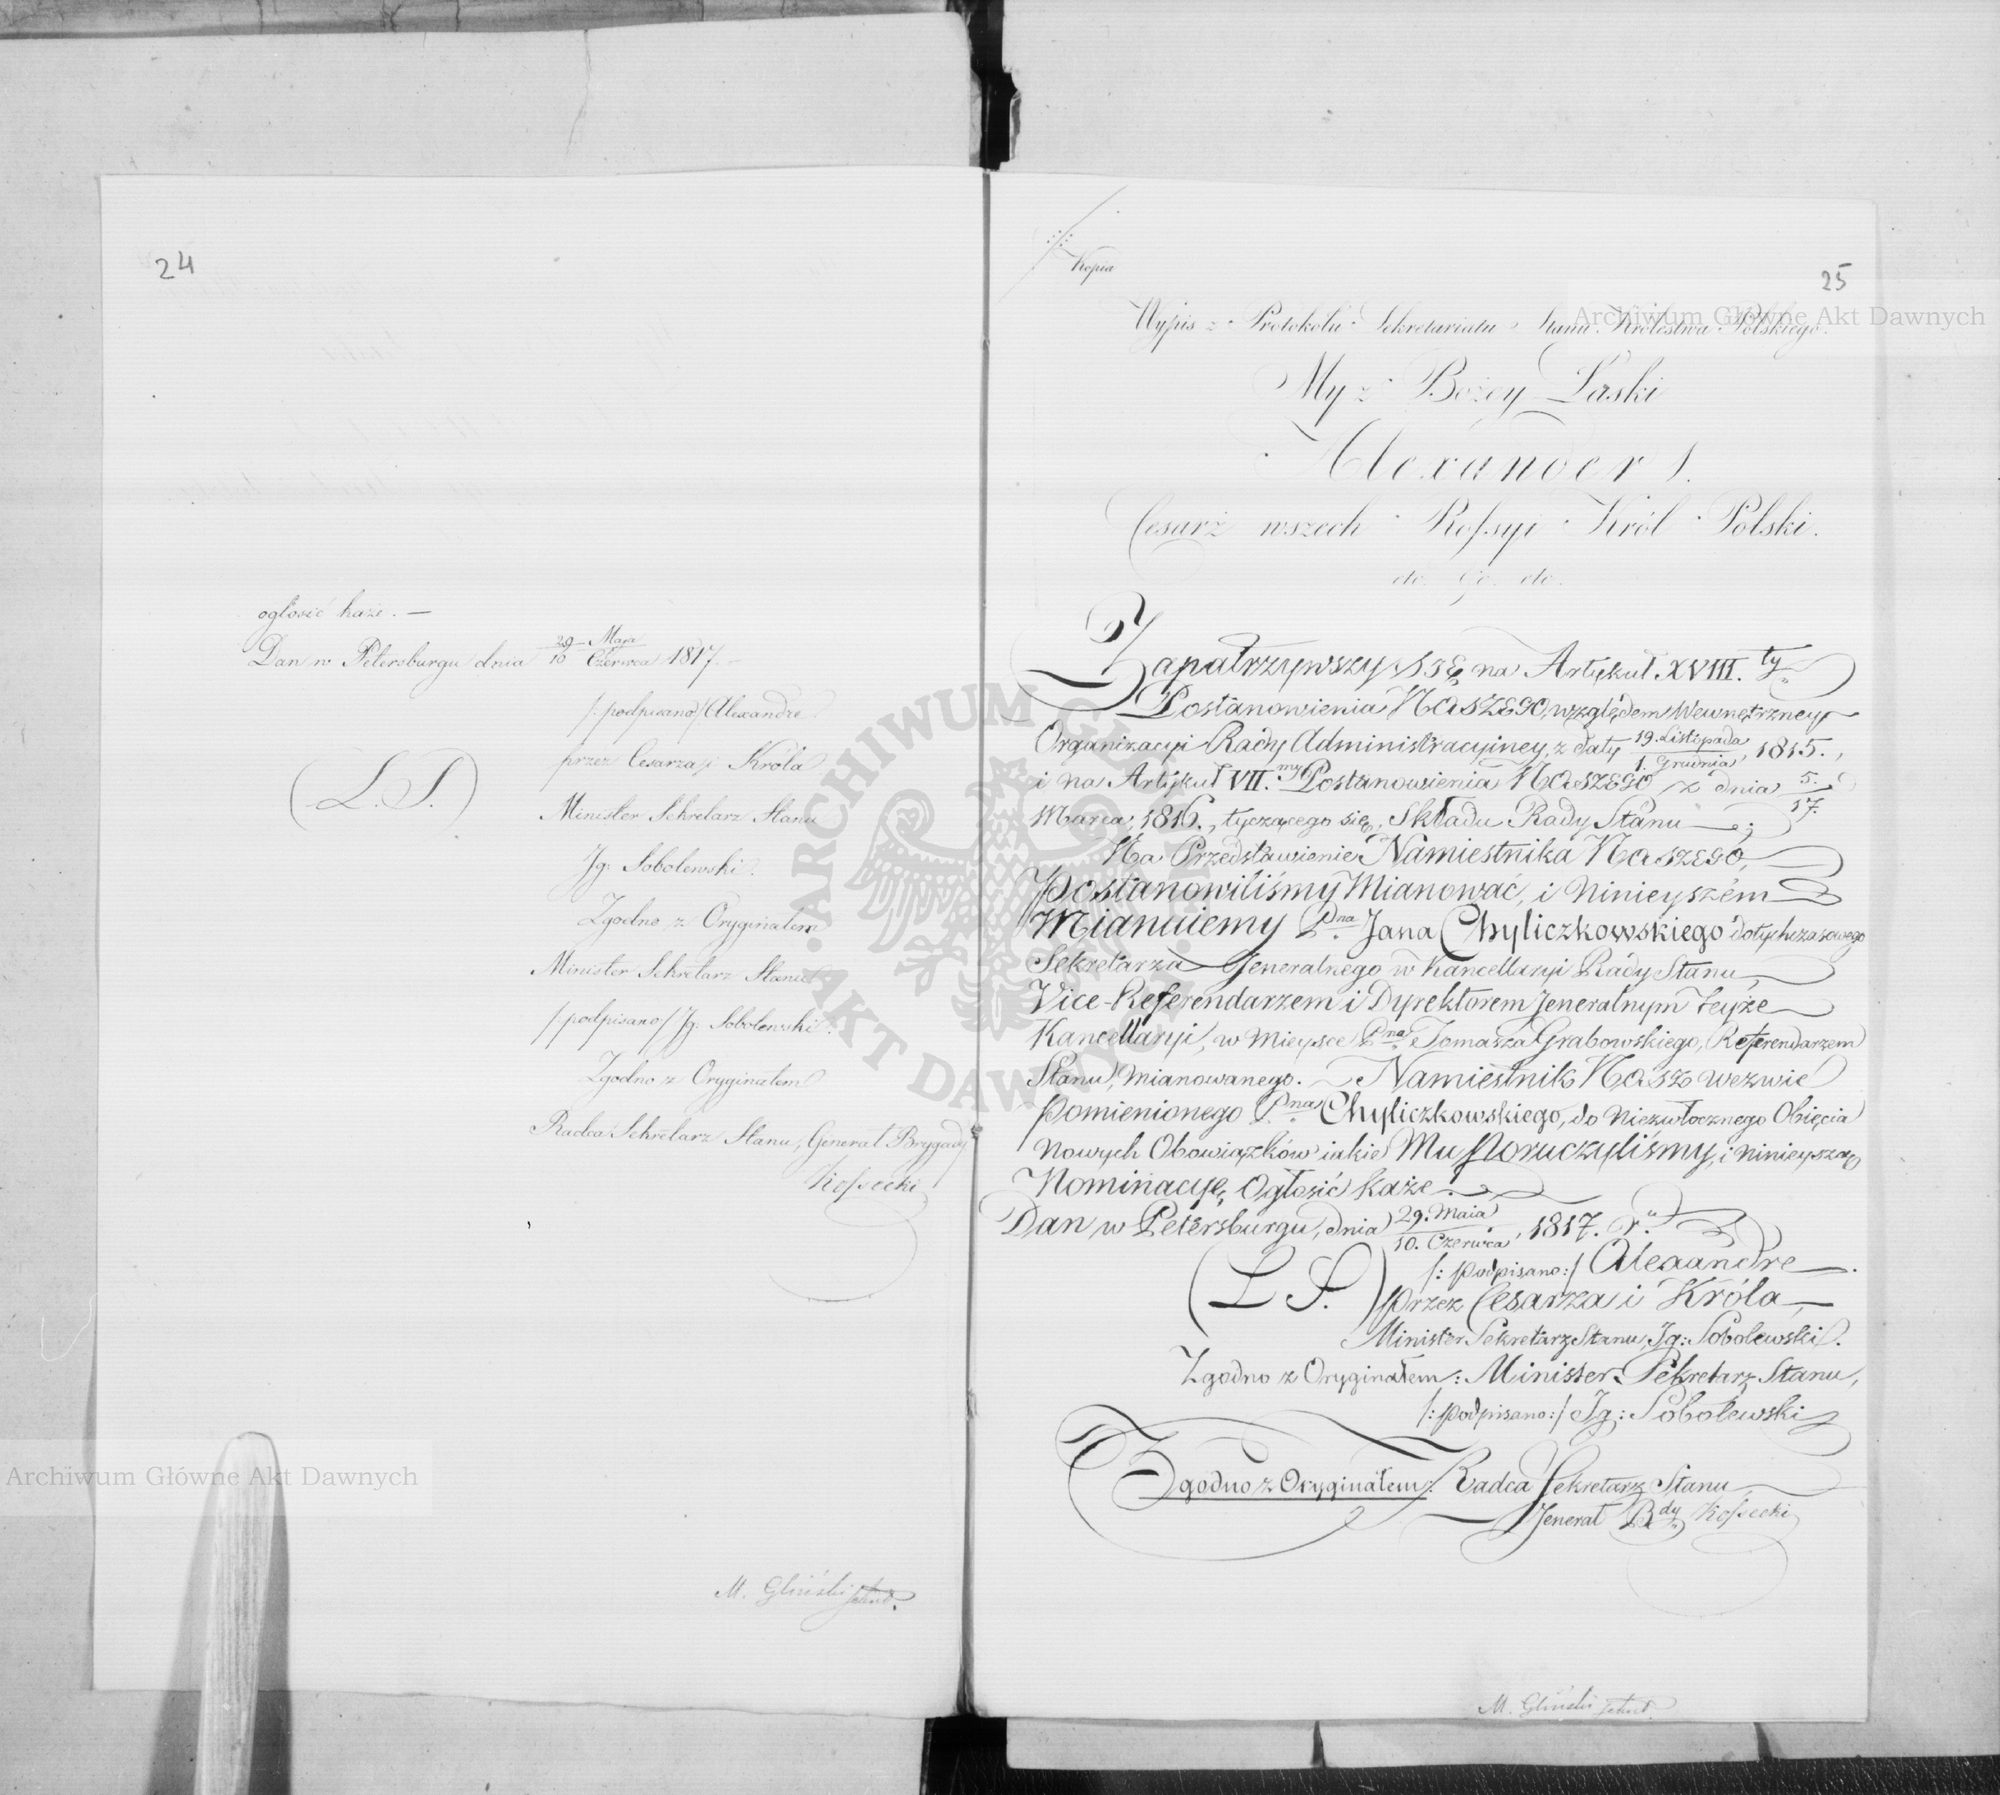 24
ogłosić każe. —
Dan w Petersburgu dnia 29 Maja / 10 Czerwca 1817. —
/: podpisano/ Alexandre
przez Cesarza i Króla
(L. S.)
Minister Sekretarz Stanu
Jg: Sobolewski.
Zgodno z Oryginałem
Minister Sekretarz Stanu
/:podpisano/ Jg. Sobolewski.
Zgodno z Oryginałem
Radca Sekretarz Stanu, Generał Brygady
Kossecki
M. Gliński
Kopia
25
Wypis z Protokółu Sekretariatu Stanu Królestwa Polskiego.
My z Bożey Łaski
Alexander I.
Cesarz wszech Rossyi Król Polski.
etc. etc. etc.
Zapatrzywszy się na Artykuł XVIII.ty
Postanowienia Naszego, względem Wewnętrzney
Organizacyi Rady Administracyiney, z daty 19. Listopada / 1. Grudnia, 1815.,
i na Artykuł VII.my Postanowienia Naszego z dnia 5. / 17.
Marca, 1816., tyczącego się, Składu Rady Stanu —;
Na Przedstawienie Namiestnika Naszego,
Postanowiliśmy Mianować, i ninieyszém
Mianujemy Pna Jana Chyliczkowskiego dotychczasowego
Sekretarza Generalnego w Kancellaryi Rady Stanu,
Vice-Referendarzem i Dyrektorem Jeneralnym teyże
Kancellaryi, w mieysce Pna Tomasza Grabowskiego, Referendarzem
Stanu, mianowanego. — Namiestnik Nasz wezwie
pomienionego Pna Chyliczkowskiego, do niezwłocznego Obięcia
nowych Obowiązków iakie Mu Poruczyliśmy, i ninieyszą
Nominacyę, Ogłosić każe —
Dan w Petersburgu, dnia 29. Maia / 10. Czerwca, 1817. r.u
(L S.)
/: podpisano:/ Alexandre —.
przez Cesarza i Króla —
Minister Sekretarz Stanu, Jg: Sobolewski.
Zgodno z Oryginałem: Minister Sekretarz Stanu,
/: podpisano:/ Jg: Sobolewski
Zgodno z Oryginałem: Radca Sekretarz Stanu
Jenerał Bdy Kossecki
M. Gliński
Archiwum Główne Akt Dawnych
Archiwum Główne Akt Dawnych
ARCHIWUM GŁÓWNE AKT DAWNYCH